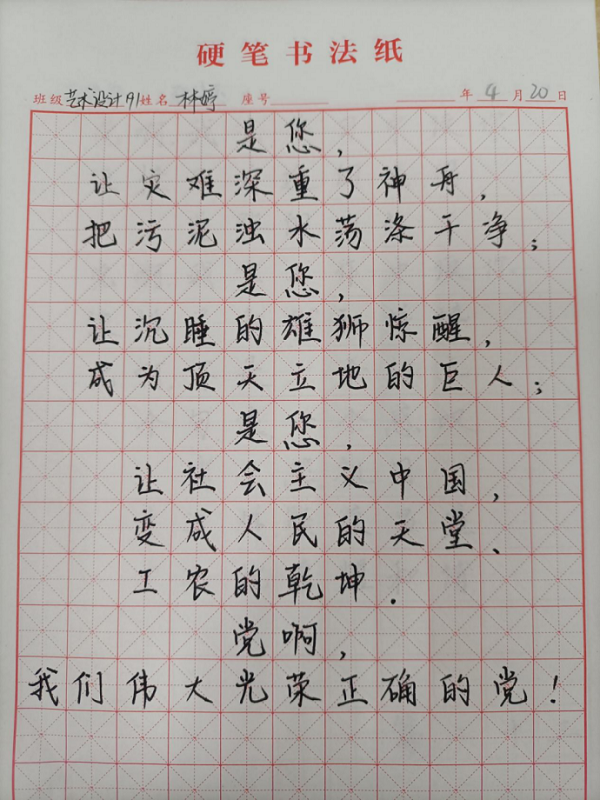 硬笔书法纸
班级 艺术设计91 姓名 林婷 座号 年 4 月 20 日
是您，
让灾难深重了神舟，
把污泥浊水荡涤干净；
是您，
让沉睡的雄狮惊醒，
成为顶天立地的巨人；
是您，
让社会主义中国，
变成人民的天堂、
工农的乾坤.
党啊，
我们伟大光荣正确的党！